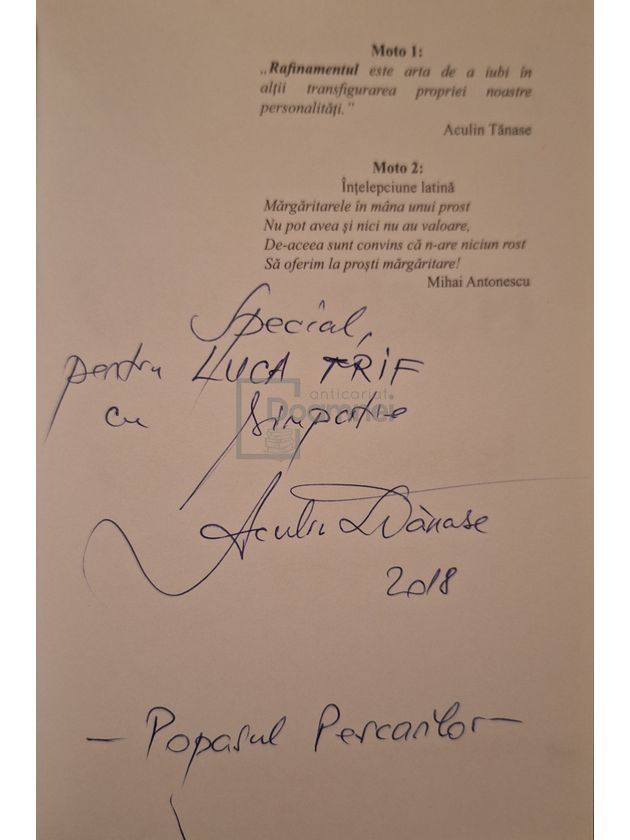 Moto 1:
„Rafinamentul este arta de a iubi în
alții transfigurarea propriei noastre
personalități.”
Aculin Tănase
Moto 2:
Înțelepciune latină
Mărgăritarele în mâna unui prost
Nu pot avea și nici nu au valoare,
De-aceea sunt convins că n-are niciun rost
Să oferim la proști mărgăritare!
Mihai Antonescu
Special,
pentru LUCA TRIF
anticariat
Doamnei
cu simpatie
Aculin Tănase
2018
- Popasul Pescarilor -